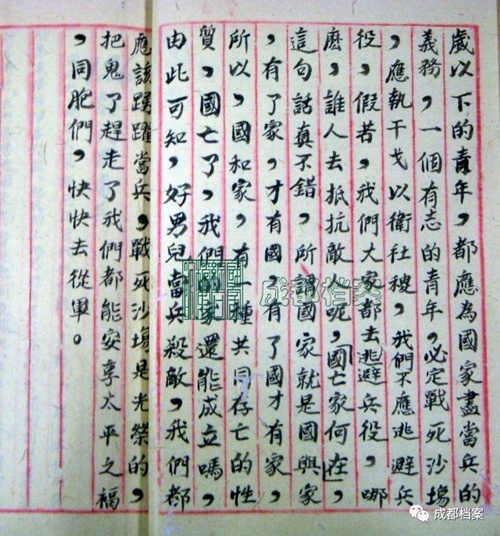 歲以下的青年，都應為國家盡當兵的
義務，一個有志的青年，必定戰死沙塲
，應執干戈以衛社稷，我們不應逃避兵
役，假若，我們大家都去逃避兵役，哪
麽，誰人去抵抗敵人呢，國亡家何在，
這句話真不錯，所謂國家就是國與家
，有了家，才有國，有了國才有家，
所以，國和家，有一種共同存亡的性
質，國亡了，我們的家還能成立嗎，
由此可知，好男兒當兵殺敵，我們都
應該踴躍當兵，戰死沙塲是光榮的，
把鬼子趕走了我們都能安享太平之福
，同胞們，快快去從軍。
成都档案
成都档案